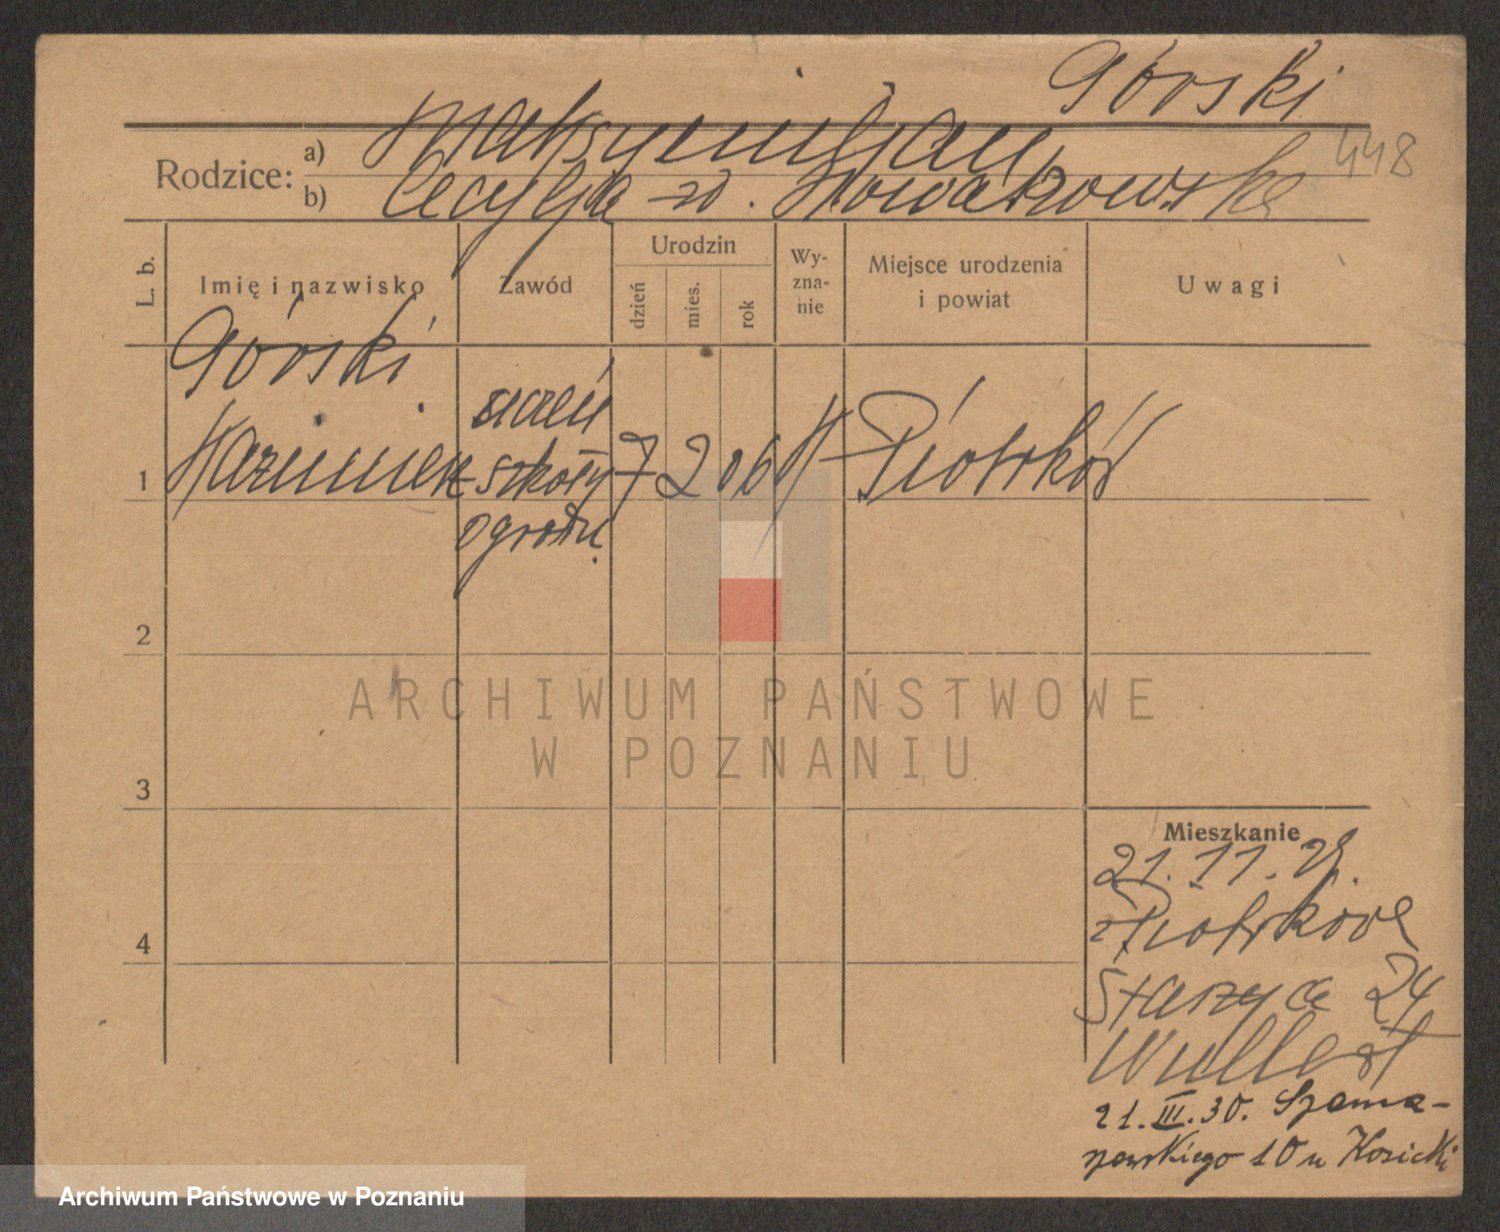 Górski
448
Rodzice: a) Maksymiljan
b) Cecylja zd. Nowakowska
L. b. Imię i nazwisko Zawód Urodzin dzień mies. rok Wy-zna-nie Miejsce urodzenia i powiat Uwagi
Górski
uczeń
1 Kazimierz szkoły 7 2 06 Piotrków
ogrodn.
2
ARCHIWUM PAŃSTWOWE
W POZNANIU
3
Mieszkanie
21.11.
z Piotrkowa
Staszyca 24
21.III.30. Szama-
rzewskiego 10 u Kosicki
4
Archiwum Państwowe w Poznaniu